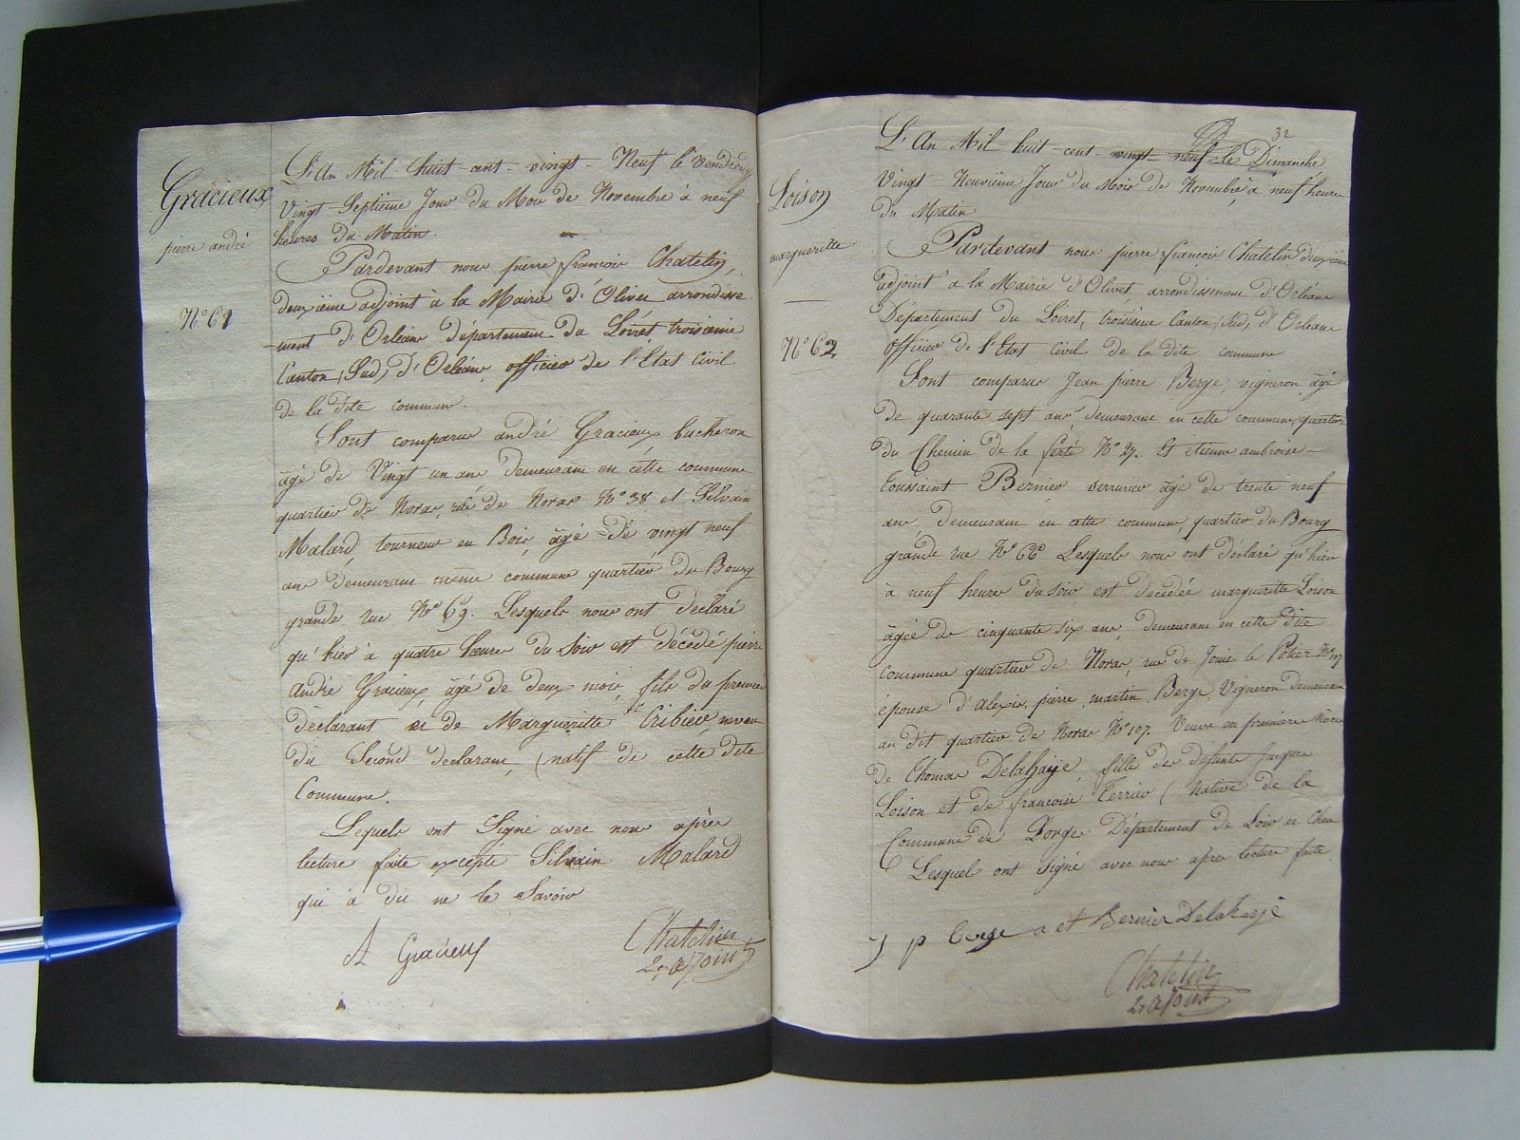 Gracieux
pierre andré
N° 61
L'An Mil huit cent vingt Neuf le vendredy
Vingt Septieme Jour du Mois de Novembre à neuf
heures du Matin.
Pardevant nous pierre françois Chatelin,
deuxième adjoint à la Mairie d'Olivet arrondisse
ment d'Orléans département du Loiret, troisième
Canton, (Sud) d'Orléans, officier de l'Etat Civil
de la dite commune.
Sont comparus andré Gracieux bucheron
âgé de Vingt un ans demeurant en cette commune
quartier de Noras, rue de Noras N° 38 et Silvain
Malard, tourneur en Bois, âgé de vingt neuf
ans demeurant même commune quartier du Bourg
grande rue N° 69. Lesquels nous ont déclaré
qu'hier à quatre heure du soir est décédé pierre
andré Gracieux, âgé de deux mois, fils du premier
déclarant et de Margueritte Cribier, neveu
du Second déclarant, (natif de cette dite
Commune.
Lequels ont Signé avec nous après
lecture faite excepté Silvain Malard
qui à dit ne le Savoir
A Gracieux
Chatelin
2e adjoint
32
Loison
marguerette
N° 62
L'An Mil huit cent vingt neuf le Dimanche
Vingt Neuvième Jour du Mois de Novembre, à neuf heure
du Matin
Pardevant nous pierre françois Chatelin deuxième
adjoint à la Mairie d'Olivet arrondissement d'Orléans
Département du Loiret, troisième Canton, (Sud) d'Orléans
officier de l'Etat Civil de la dite commune
Sont comparus Jean pierre Berge, vigneron, âgé
de quarante sept ans, demeurant en cette commune, quartier
du Chemin de la ferté N° 27. Et etienne ambroise
Toussaint Bernier serrurier âgé de trente neuf
ans, demeurant en cette commune, quartier du Bourg
grande rue N° 66 Lesquels nous ont déclaré qu'hier
à neuf heures du soir est décédée marguerite Loison
âgée de cinquante six ans, demeurant en cette dite
commune quartier de Noras, rue de le Potier N° 107
épouse d'alexis, pierre, martin Berge, Vigneron demeurant
au dit quartier de Noras N° 107. Veuve en première Noce
de Thomas Delahaije, fille de defunts Jacques
Loison et de françoise Terrier (Native de la
Commune de Département de Loir et Cher
Lesquel ont signé avec nous après lecture faite
J p Berge a et Bernier Delahaije
Chatelin
2e adjoint